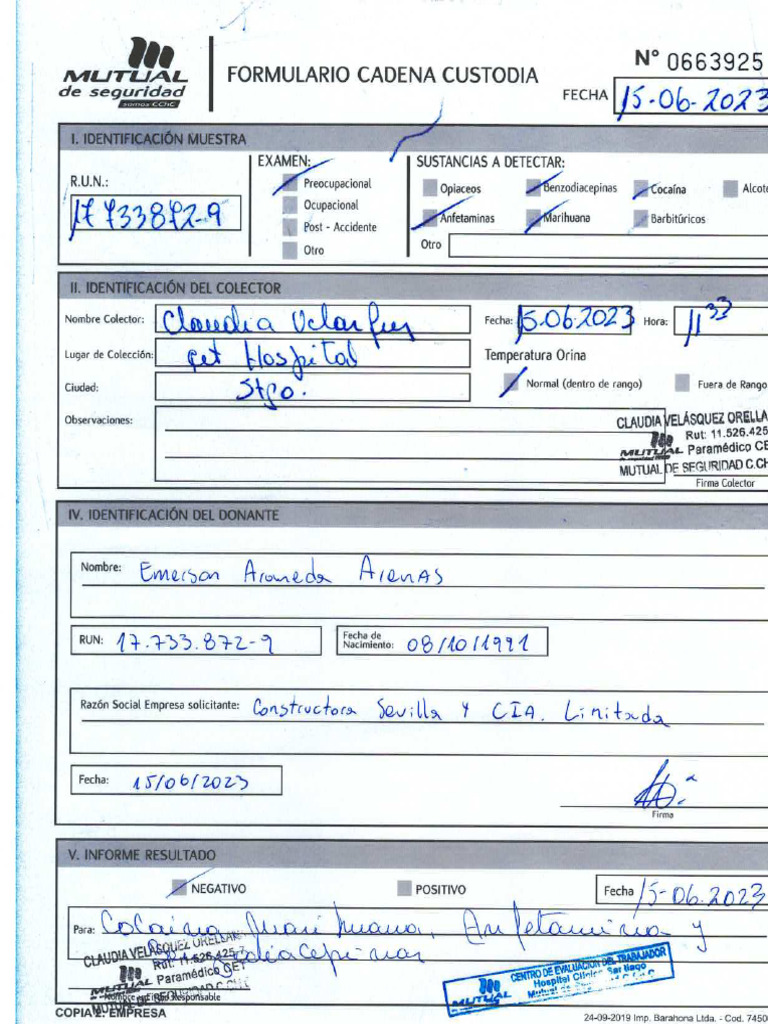 MUTUAL
de seguridad
somos CChC
FORMULARIO CADENA CUSTODIA
N° 0663925
FECHA 15-06-2023
I. IDENTIFICACIÓN MUESTRA
R.U.N.:
17733872-9
EXAMEN:
Preocupacional
Ocupacional
Post - Accidente
Otro
SUSTANCIAS A DETECTAR:
Opiaceos Benzodiacepinas Cocaína Alco
Anfetaminas Marihuana Barbitúricos
Otro
II. IDENTIFICACIÓN DEL COLECTOR
Nombre Colector: Claudia Fecha: 15-06-2023 Hora: 11 33
Lugar de Colección: cet Hospital
Temperatura Orina
Ciudad: Stgo.
Normal (dentro de rango) Fuera de Rango
Observaciones:
CLAUDIA VELÁSQUEZ ORELLA
Rut: 11.526.425
MUTUAL Paramédico CE
MUTUAL DE SEGURIDAD C.CH
Firma Colector
IV. IDENTIFICACIÓN DEL DONANTE
Nombre: Emerson Araneda Arenas
RUN: 17.733.872-9 Fecha de Nacimiento: 08/10/1991
Razón Social Empresa solicitante: Constructora Sevilla Y CIA. Limitada
Fecha: 15/06/2023
Firma
V. INFORME RESULTADO
NEGATIVO POSITIVO Fecha 15-06.2023
Para: Cocaina, Marihuana, Anfetamina y
CLAUDIA VELÁSQUEZ ORELLAN
Rut: 11.526.425-7
Paramédico CET
Responsable
CENTRO DE EVALUACION DEL TRABAJADOR
Hospital Clínico Santiago
MUTUAL
COPIA 2: EMPRESA
24-09-2019 Imp. Barahona Ltda. - Cod. 7450